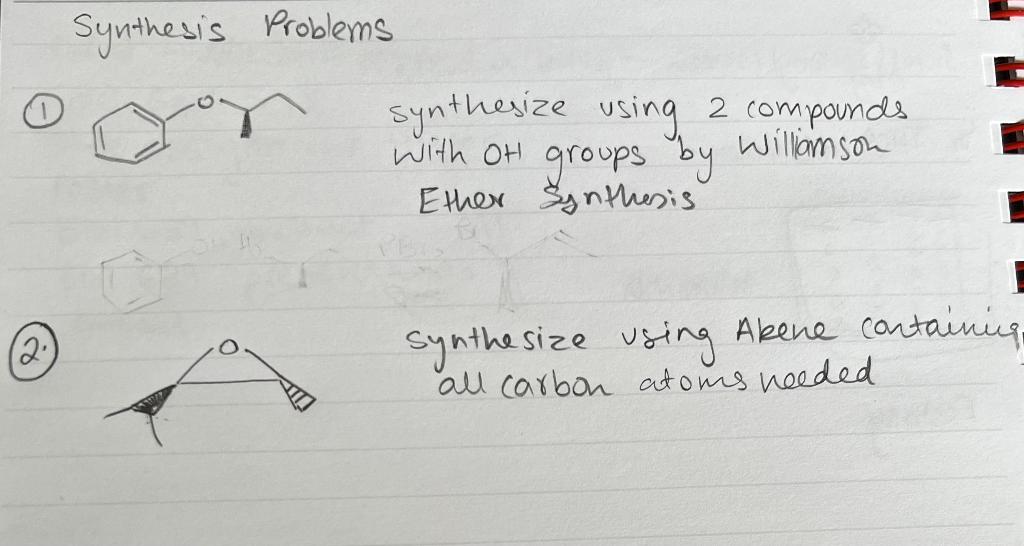 Synthesis Problems
1 O synthesize using 2 compounds
with OH groups by Williamson
Ether Synthesis
PBr3
2. O synthesize using Akene containing
all carbon atoms needed